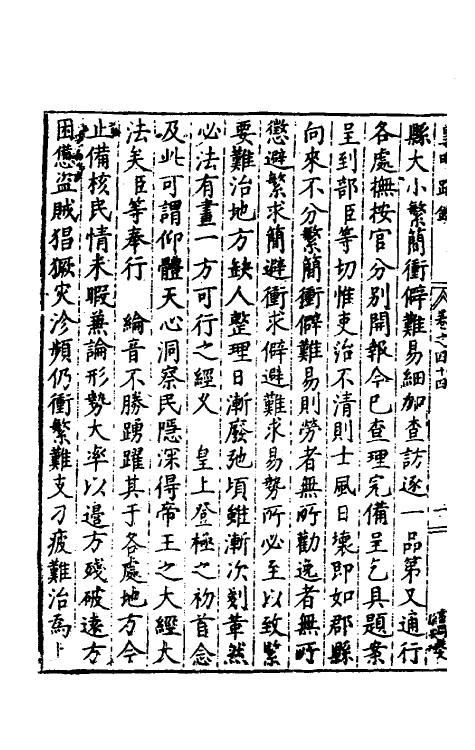 皇明疏鈔 卷之四十四 十一
縣大小繁簡衝僻難易細加查訪逐一品第又通行
各處撫按官分別開報今巳查理完備呈乞具題案
呈到部臣等切惟吏治不清則士風日壞即如郡縣
向來不分繁簡衝僻難易則勞者無所勸逸者無所
懲避繁求簡避衝求僻避難求易勢所必至以致繁
要難治地方缺人整理日漸廢弛頃雖漸次刻革然
必法有畫一方可行之經义 皇上登極之初首念
及此可謂仰體天心洞察民隱深得帝王之大經大
法矣臣等奉行 綸音不勝踴躍其于各處地方今
止備核民情未暇兼論形勢大率以邉方殘破遠方
困憊盗賊猖獗灾沴頻仍衝繁難支刁疲難治為上